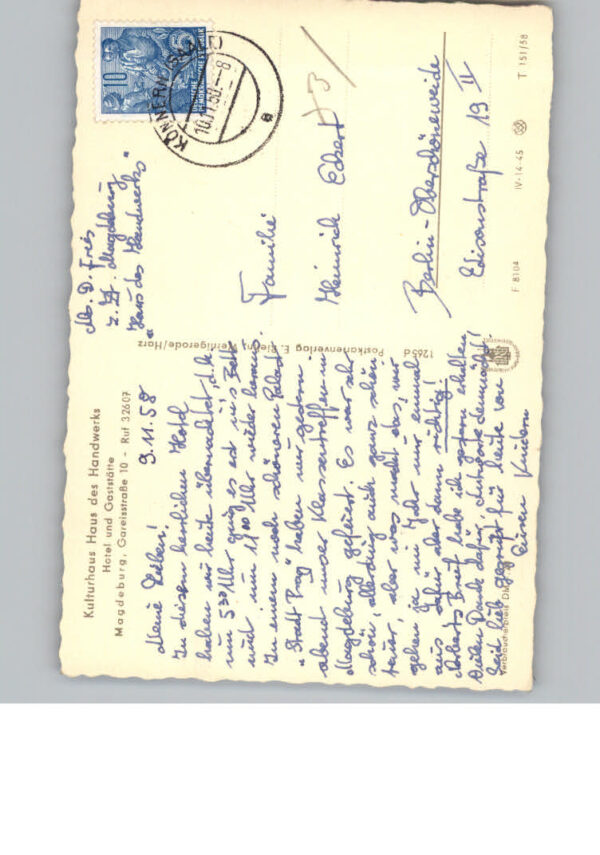 Kulturhaus Haus des Handwerks
Hotel und Gaststätte
Magdeburg, Gareisstraße 10 - Ruf 32607
9.11.58
Meine Lieben!
In diesem herrlichen Hotel
haben wir heute übernachtet, d. h.
um 5³⁰ Uhr ging es erst in's Bett
und um 11⁰⁰ Uhr wieder heraus.
In einem noch schöneren Palast
"Stadt Prag" haben wir gestern
abend unser Klassentreffen in
Magdeburg gefeiert. Es war sehr
schön, allerdings auch ganz schön
teuer, aber was macht das, wir
gehen ja im Jahr nur einmal
aus, dafür aber dann richtig!
Brief habe ich gestern erhalten
Vielen Dank dafür,
Seid lieb gegrüßt für heute von
Euren
Verbraucherpreis DM
1265d Postkartenverlag E. Riehn, Wernigerode/Harz
Abs. D. Fries
z. Zt. Magdeburg
"Haus des Handwerks"
KÖNNERN
10.11.58.-8
a
10
DEUTSCHE
DEMOKRATISCHE REPUBLIK
Familie
Heinrich Eckert
Berlin-Oberschöneweide
Edisonstraße 19 II
F 8104 IV-14-45 T 151/58